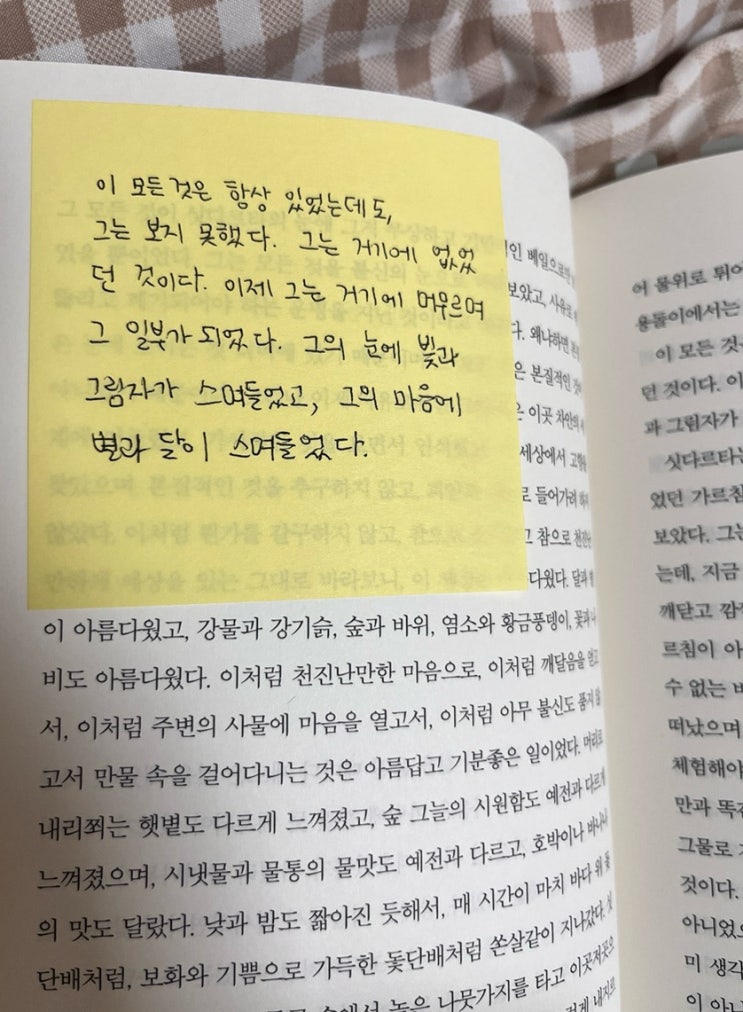 이 모든것은 항상 있었는데도,
그는 보지 못했다. 그는 거기에 없었
던 것이다. 이제 그는 거기에 머무르며
그 일부가 되었다. 그의 눈에 빛과
그림자가 스며들었고, 그의 마음에
별과 달이 스며들었다.
인 베일으로
보았고, 사유로
다. 왜냐하면
은 본질적인
은 이곳 차안의
세상에서
로 들어가려
그 참으로
다웠다. 달과
이 아름다웠고, 강물과 강기슭, 숲과 바위, 염소와 황금풍뎅이, 꽃과 나
비도 아름다웠다. 이처럼 천진난만한 마음으로, 이처럼 깨달음을 얻고
서, 이처럼 주변의 사물에 마음을 열고서, 이처럼 아무 불신도 품지 않
고서 만물 속을 걸어다니는 것은 아름답고 기분좋은 일이었다. 머리로
내리쬐는 햇볕도 다르게 느껴졌고, 숲 그늘의 시원함도 예전과 다르게
느껴졌으며, 시냇물과 물통의 물맛도 예전과 다르고, 호박이나 바나나
의 맛도 달랐다. 낮과 밤도 짧아진 듯해서, 매 시간이 마치 바다 위 돛
단배처럼, 보화와 기쁨으로 가득한 돛단배처럼 쏜살같이 지나갔다.
숲에서 높은 나뭇가지를 타고 이곳저곳으
어 물위로 튀어
용돌이에서는
이 모든 것
던 것이다. 이
과 그림자가
싯다르타는
었던 가르침
보았다. 그는
는데, 지금
깨닫고
르침이 아
수 없는
떠났으며
체험해야
만과 똑같
그물로
것이다.
아니었
미 생각
이 아니